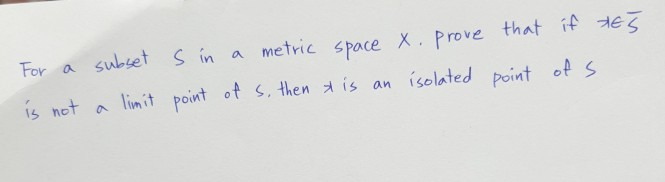 For a subset S in a metric space X. prove that if x∈S̅
is not a limit point of S, then x is an isolated point of S